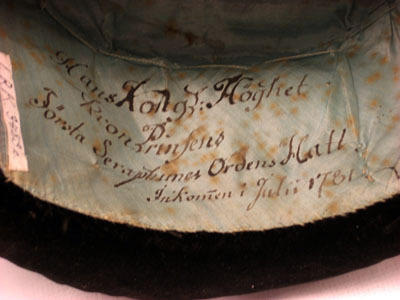 Hans Kongl: Höghet
Cron Prinsens
Första Seraphimer Ordens Hatt
Inkom̄en i Julii 1781